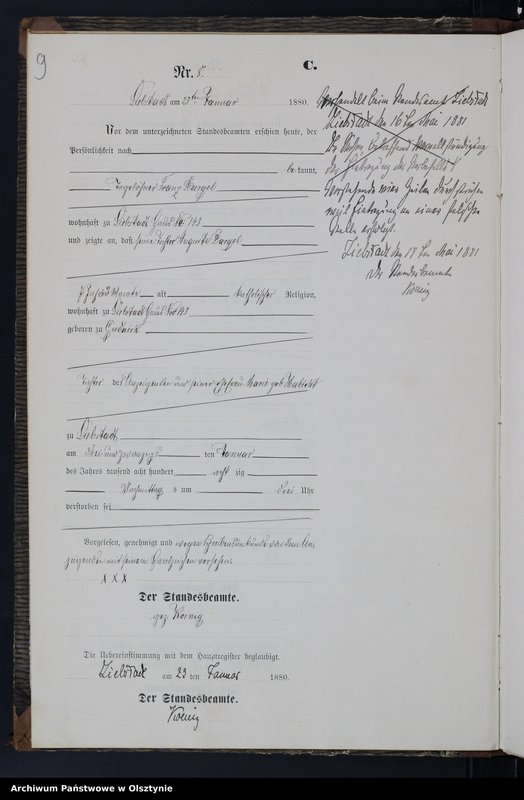 9
C.
Nr. 8.
Liebstadt am 23ten Januar 1880.
Vor dem unterzeichneten Standesbeamten erschien heute, der
Persönlichkeit nach
be kannt,
Tagelöhner Franz
wohnhaft zu Liebstadt Haus No 143
und zeigte an, daß seine Tochter Auguste
6 Jahre Monate alt, katholischer Religion,
wohnhaft zu Liebstadt Haus No 143
geboren zu
Tochter des Anzeigenden und seiner Ehefrau Marie geb.
zu Liebstadt,
am drei und zwanzigst ten Januar
des Jahres tausend acht hundert acht zig
Vormittags um drei Uhr
verstorben sei
Vorgelesen, genehmigt und wegen Schreibensunkunde von dem An-
zeigenden mit seinem Handzeichen versehen.
X X X
Der Standesbeamte.
gez. Koenig
Die Uebereinstimmung mit dem Hauptregister beglaubigt.
Liebstadt am 23 ten Januar 1880.
Der Standesbeamte.
Koenig
Verhandelt beim Standesamt Liebstadt
Liebstadt den 16ten Mai 1881
Vorstehende vier Zeilen
weil Eintragung an einer falschen
Stelle erfolgt.
Liebstadt den 17ten Mai 1881
Der Standesbeamte
Koenig
Archiwum Państwowe w Olsztynie